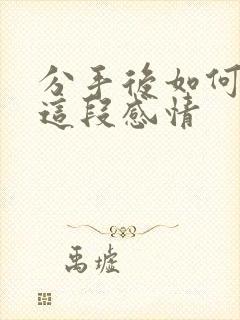 分手後如何
這段感情
禹墟